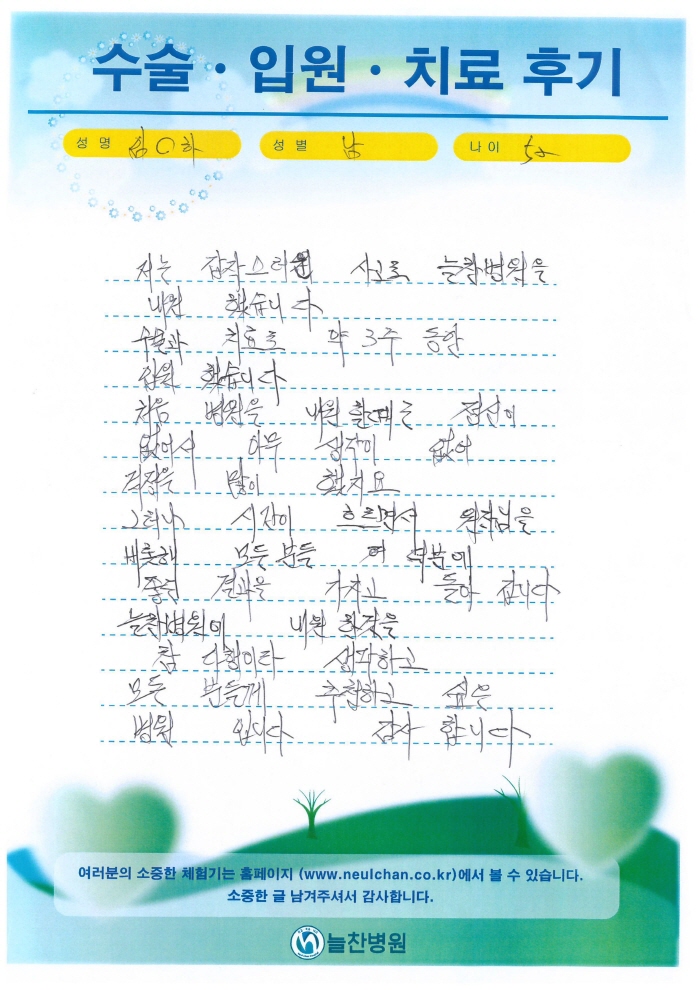 수술 · 입원 · 치료 후기
성 명 김○하 성 별 남 나 이
저는 갑작스러운 사고로 늘찬병원을
내원 했습니다
수술과 치료로 약 3주 동안
입원 했습니다
처음 병원을 내원 할때는 정신이
없어서 아무 생각이 없어
걱정을 많이 했지요
그러나 시간이 흐르면서 원장님을
비롯해 모든 분들 덕분에
좋은 결과을 가지고 돌아 갑니다
늘찬병원에 내원 한것을
참 다행이라 생각하고
모든 분들께 추천하고 싶은
병원 입니다 감사 합니다
여러분의 소중한 체험기는 홈페이지 (www.neulchan.co.kr)에서 볼 수 있습니다.
소중한 글 남겨주셔서 감사합니다.
늘찬병원